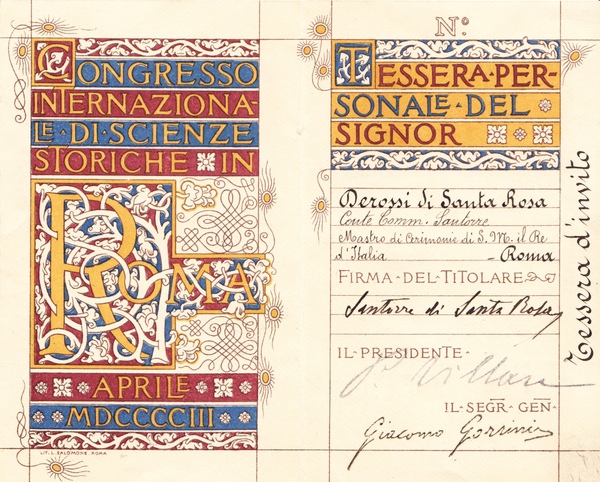 CONGRESSO
INTERNAZIONA-
LE · DI · SCIENZE
STORICHE · IN
ROMA
APRILE
MDCCCCIII
LIT. L. SALOMONE. ROMA
Nº.
TESSERA · PER-
SONALE · DEL
SIGNOR
Derossi di Santa Rosa
Conte Comm. Santorre
Mastro di Cerimonie di S. M. il Re
d'Italia – Roma
FIRMA · DEL · TITOLARE
Santorre di Santa Rosa
IL · PRESIDENTE ·
P. Villari
IL · SEGR · GEN ·
Giacomo Gorrini
Tessera d'invito